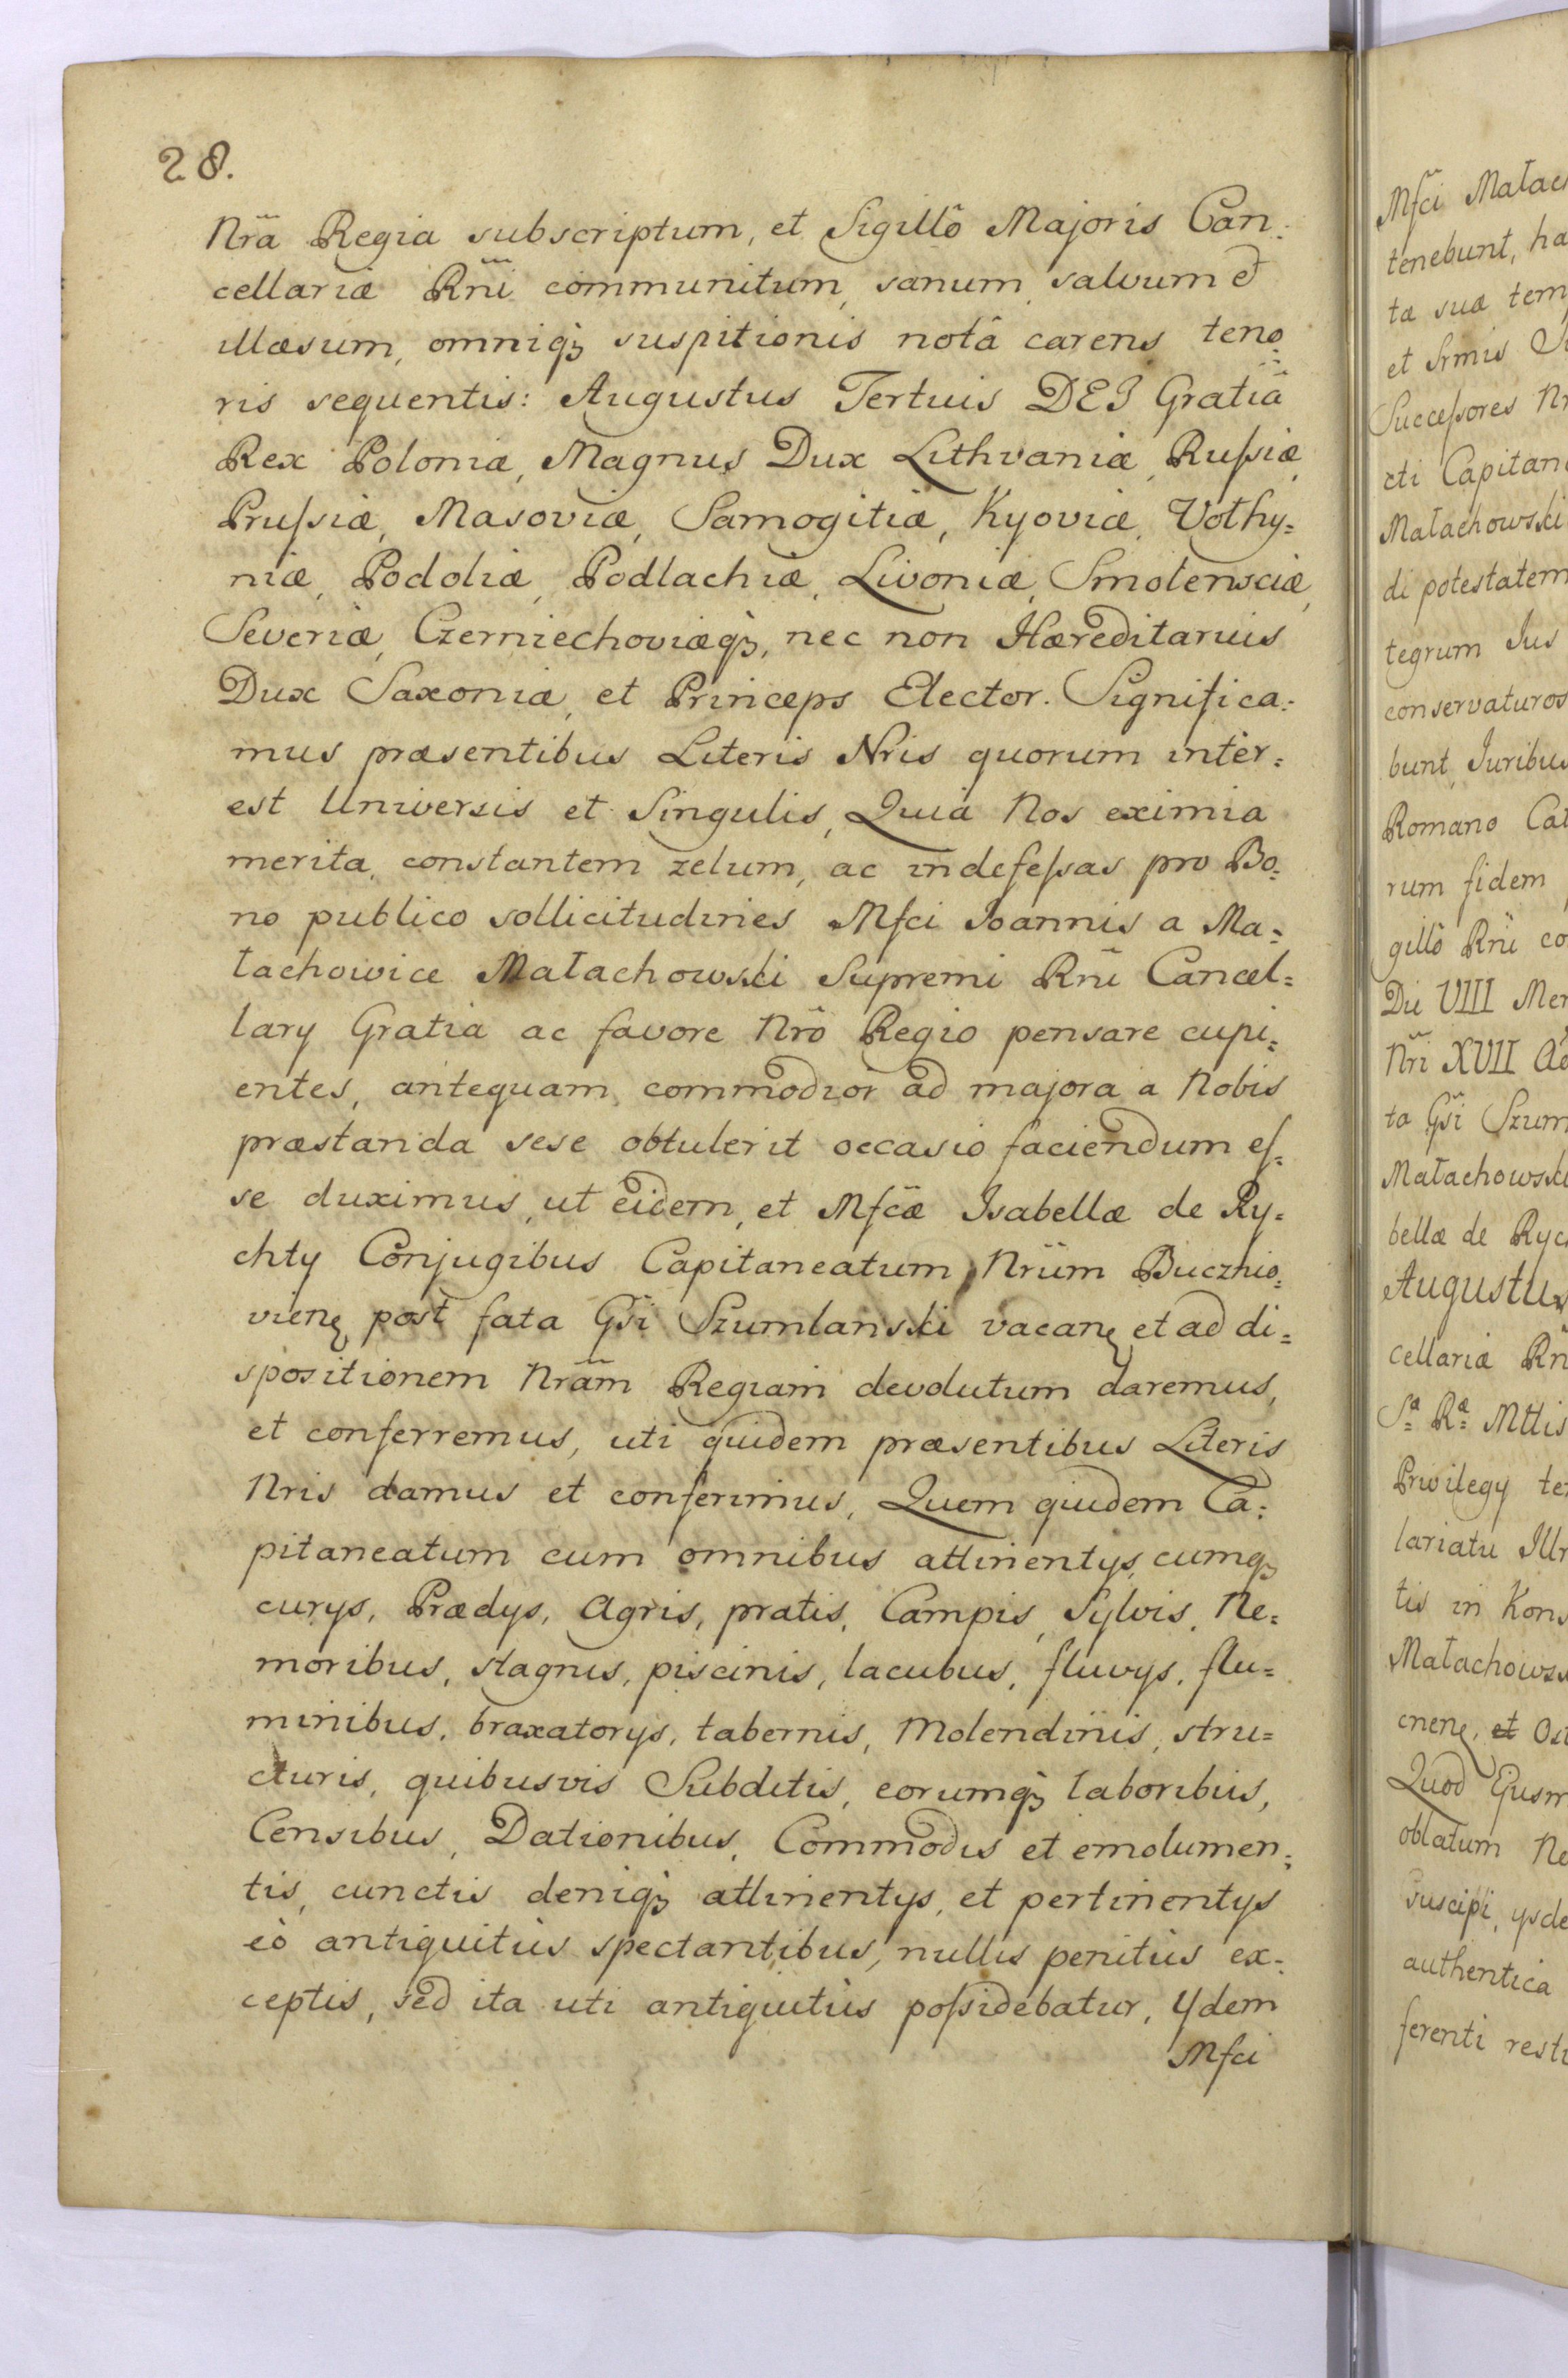 28.
Nrã Regia subscriptum, et Sigillô Majoris Can:
cellariæ Rñi communitum, sanum, salvum et
illæsum, omniq3 suspitionis notâ carens teno:
ris sequentis: Augustus Tertuis DEI Gratiâ
Rex Poloniæ, Magnus Dux Lithvaniæ, Rußiæ,
Prußiæ, Masoviæ, Samogitiæ, Kyoviæ, Vołhy=
niæ, Podoliæ, Podlachiæ, Livoniæ, Smolensciæ,
Severiæ, Czerniechoviæq3, nec non Hæreditarius
Dux Saxoniæ, et Princeps Elector. Significa:
mus præsentibus Literis Nris quorum inter:
est Universis et Singulis, Quia Nos eximia
merita, constantem zelum, ac indefeßas pro Bo:
no publico sollicitudines Mfci Joannis a Ma:
łachowice Małachowski Supremi Rñi Cancel=
lary Gratia ac favore Nrõ Regio pensare cupi:
entes, antequam commodior ad majora a Nobis
præstanda sese obtulerit occasio faciendum eſ:
se duximus, ut eidem, et Mfcæ Isabellæ de Ry=
chty Conjugibus Capitaneatum Nrũm Bucznio:
vienę post fata Gsi Szumlanski vacanę et ad di=
spositionem Nrãm Regiam devolutum daremus,
et conferremus, uti quidem præsentibus Literis
Nris damus et conferimus, Quem quidem Ca:
pitaneatum cum omnibus attinentys, cumq3
curys, Prædys, Agris, pratis, Campis, Sylvis, Ne:
moribus, stagnis, piscinis, lacubus, fluvys, flu=
minibus, braxatorys, tabernis, Molendinis, stru=
cturis, quibusvis Subditis, eorumq3 laboribus,
Censibus, Dationibus, Commodis et emolumen:
tis, cunctis deniq3 attinentys, et pertinentys
eò antiquitùs spectantibus, nullis penitùs ex:
ceptis, sed ita uti antiquitùs poßidebatur, Ydem
Mfci
Mfci Małac
tenebunt, ha
tæ suæ tem
et Srmis
Succeßores Nr
cti Capitan
Małachowski
di potestatem
tegrum Jus
conservaturos
bunt, Juribus
Romano Cat
rum fidem
gillô Rñi co
Die VIII Men
Nri XVII
ta Gsi Szum
Małachowski
bellæ de Ryc
Augustus
cellariæ Rñ
Sª Rª Mttis
Privilegy te
lariatu Illr
tis in Kons
Małachows
cnenę, et Os
Quod Ejusm
oblatum Ne
suscipi, ysde
authentica
ferenti resti